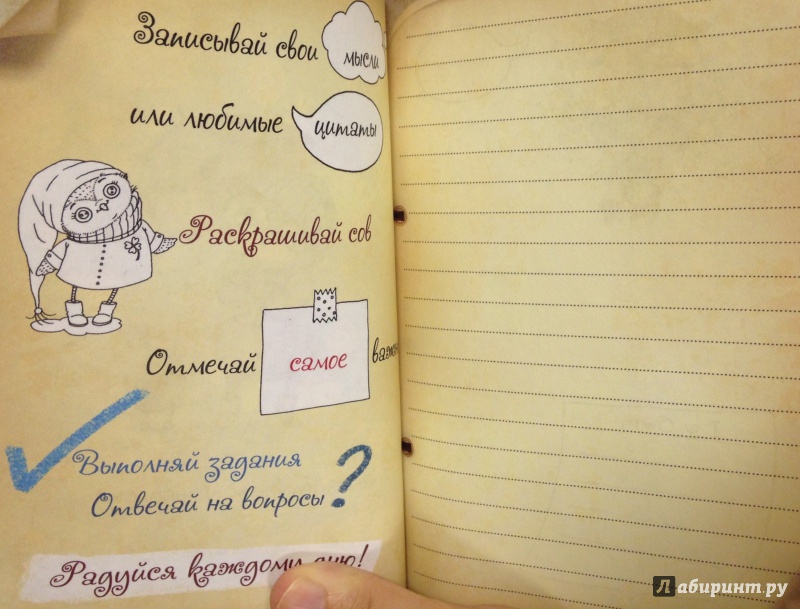 Записывай свои мысли
или любимые цитаты
Раскрашивай сов
Отмечай самое
Выполняй задания
Отвечай на вопросы?
Радуйся каждому дню!
Лабиринт.ру